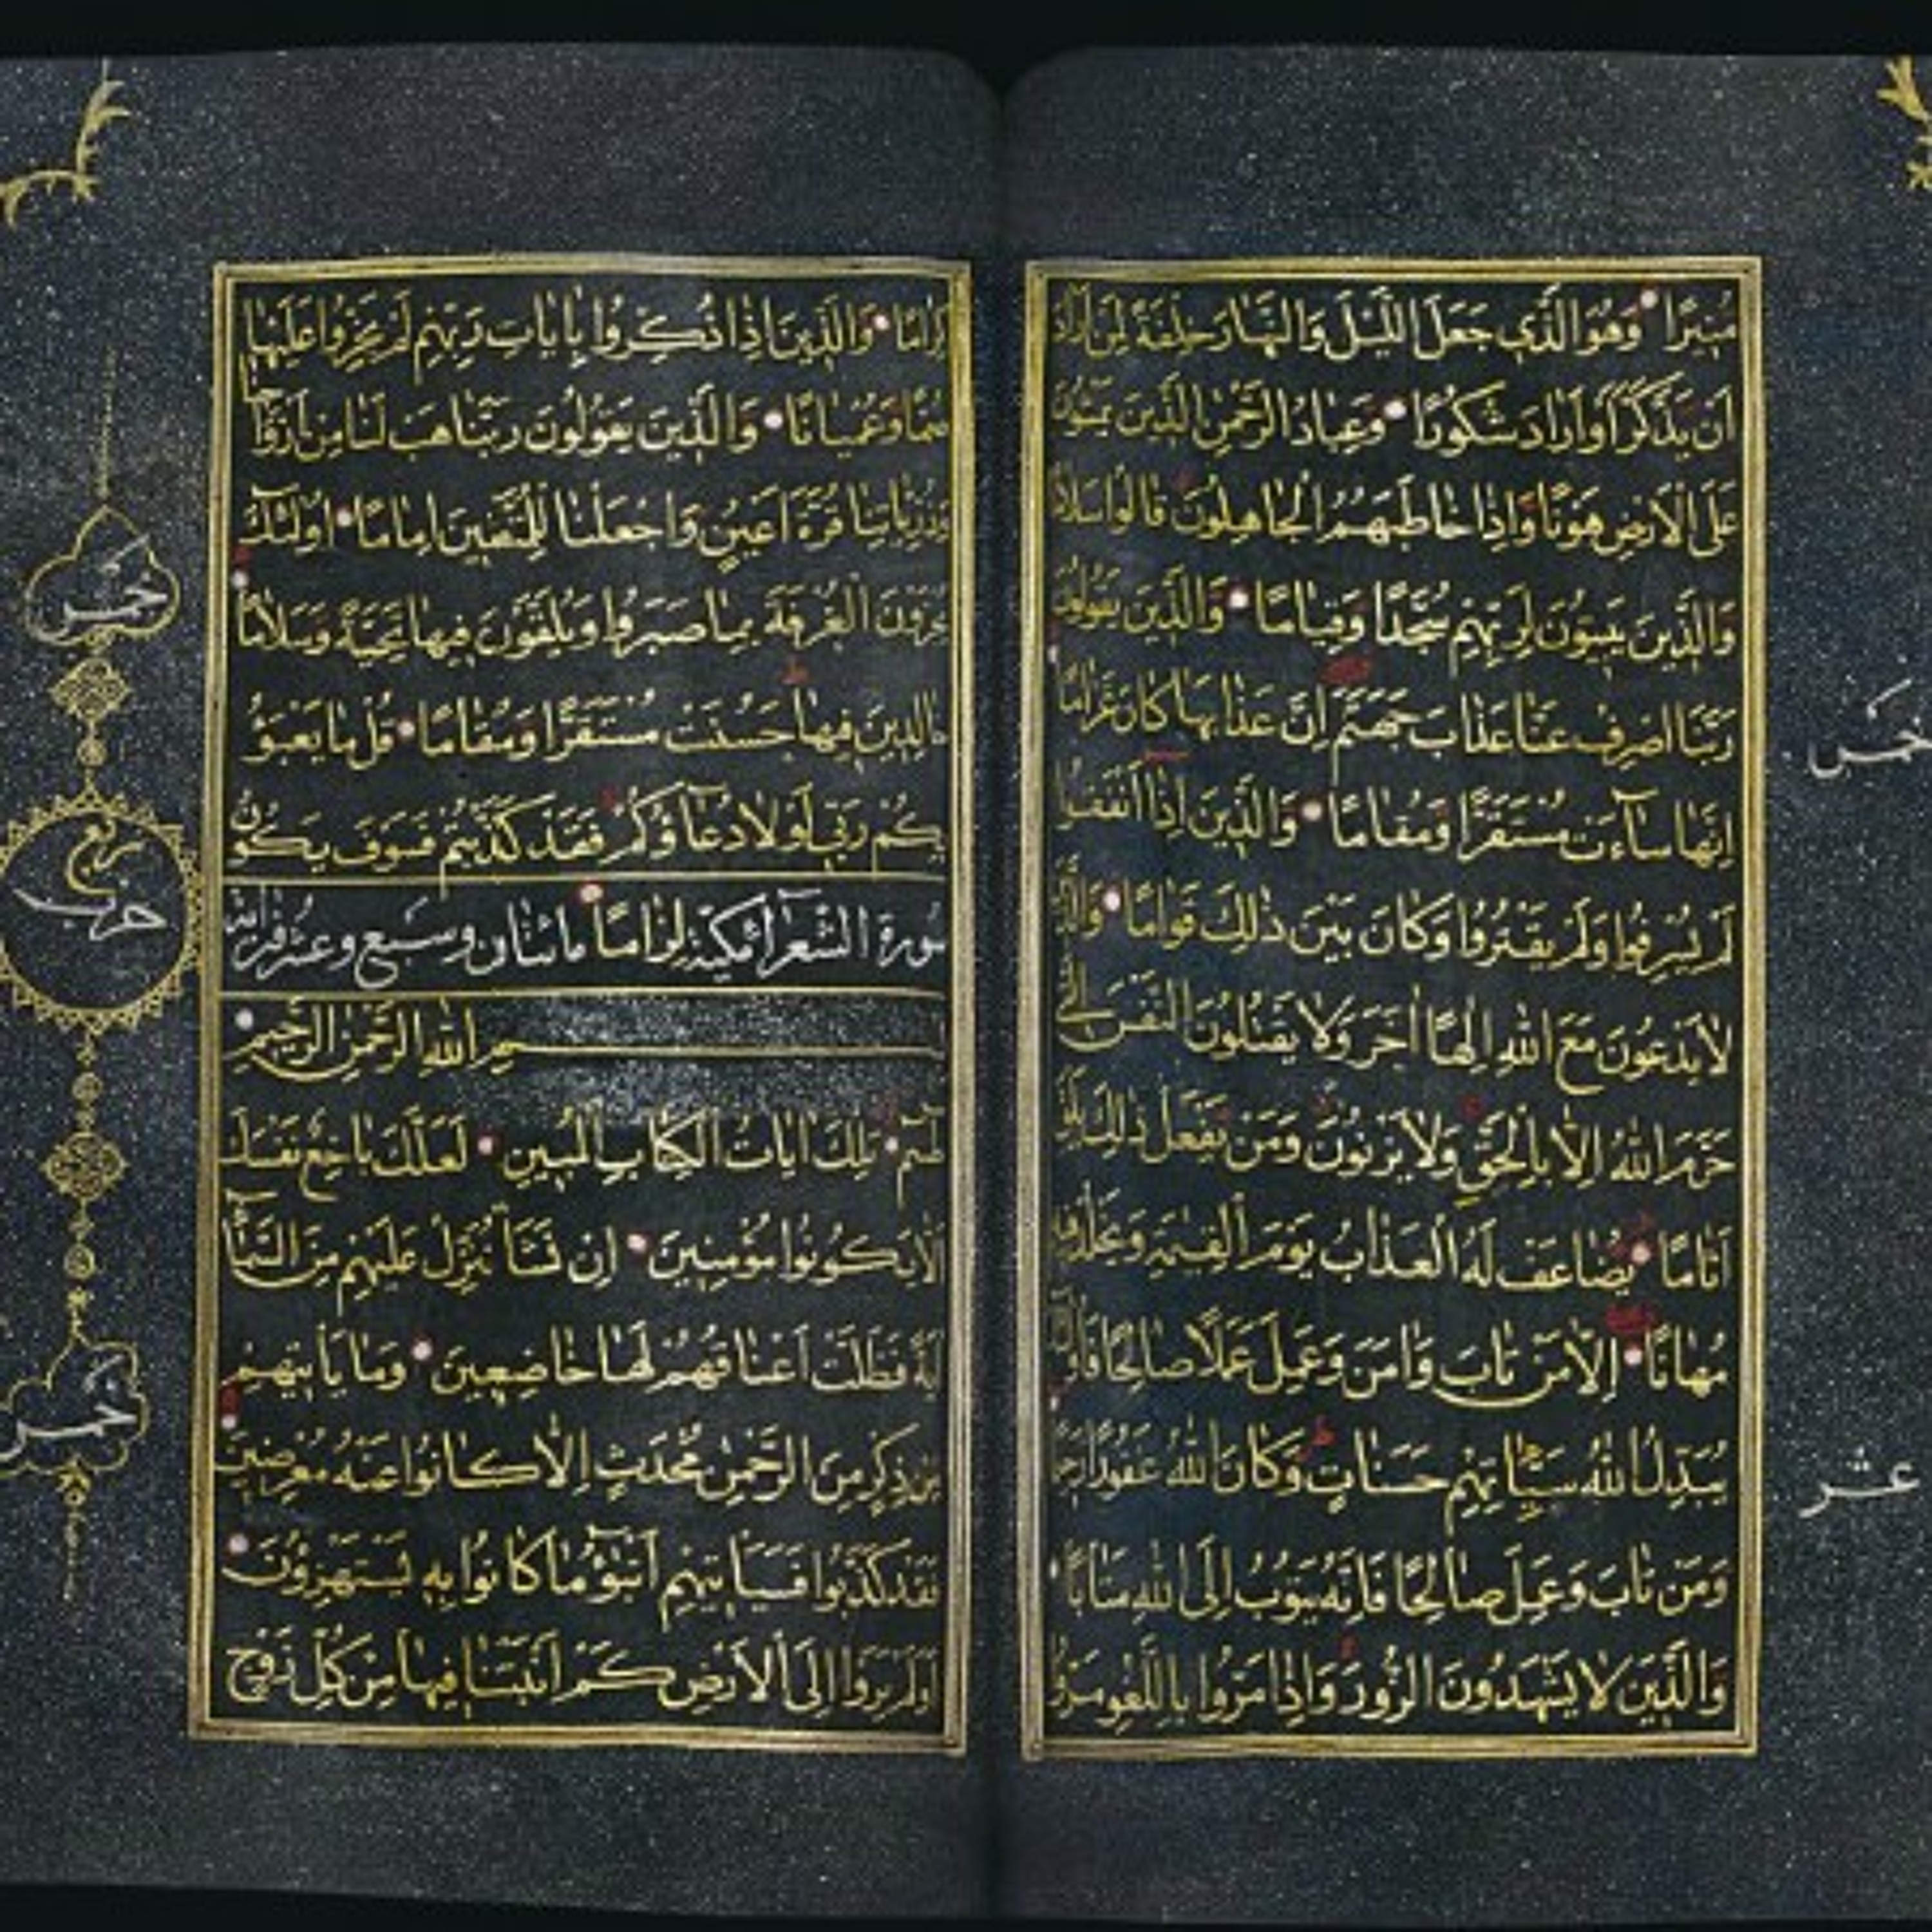 مُنِيرًا وَهُوَ الَّذِي جَعَلَ اللَّيْلَ وَالنَّهَارَ خِلْفَةً لِمَنْ اَرَادَ
اَنْ يَذَّكَّرَ اَوْ اَرَادَ شُكُورًا وَعِبَادُ الرَّحْمٰنِ الَّذِينَ يَمْشُونَ
عَلَى الْاَرْضِ هَوْنًا وَاِذَا خَاطَبَهُمُ الْجَاهِلُونَ قَالُوا سَلَامًا
وَالَّذِينَ يَبِيتُونَ لِرَبِّهِمْ سُجَّدًا وَقِيَامًا وَالَّذِينَ يَقُولُونَ
رَبَّنَا اصْرِفْ عَنَّا عَذَابَ جَهَنَّمَ اِنَّ عَذَابَهَا كَانَ غَرَامًا
اِنَّهَا سَآءَتْ مُسْتَقَرًّا وَمُقَامًا وَالَّذِينَ اِذَا اَنْفَقُوا
لَمْ يُسْرِفُوا وَلَمْ يَقْتُرُوا وَكَانَ بَيْنَ ذٰلِكَ قَوَامًا وَالَّذِينَ
لَا يَدْعُونَ مَعَ اللّٰهِ اِلٰهًا اٰخَرَ وَلَا يَقْتُلُونَ النَّفْسَ الَّتِي
حَرَّمَ اللّٰهُ اِلَّا بِالْحَقِّ وَلَا يَزْنُونَ وَمَنْ يَفْعَلْ ذٰلِكَ يَلْقَ
اَثَامًا يُضَاعَفْ لَهُ الْعَذَابُ يَوْمَ الْقِيٰمَةِ وَيَخْلُدْ فِيهِ
مُهَانًا اِلَّا مَنْ تَابَ وَاٰمَنَ وَعَمِلَ عَمَلًا صَالِحًا فَاُولٰئِكَ
يُبَدِّلُ اللّٰهُ سَيِّاٰتِهِمْ حَسَنَاتٍ وَكَانَ اللّٰهُ غَفُورًا رَحِيمًا
وَمَنْ تَابَ وَعَمِلَ صَالِحًا فَاِنَّهُ يَتُوبُ اِلَى اللّٰهِ مَتَابًا
وَالَّذِينَ لَا يَشْهَدُونَ الزُّورَ وَاِذَا مَرُّوا بِاللَّغْوِ مَرُّوا
خمس
عشر
كِرَامًا وَالَّذِينَ اِذَا ذُكِّرُوا بِاٰيَاتِ رَبِّهِمْ لَمْ يَخِرُّوا عَلَيْهَا
صُمًّا وَعُمْيَانًا وَالَّذِينَ يَقُولُونَ رَبَّنَا هَبْ لَنَا مِنْ اَزْوَاجِنَا
وَذُرِّيَّاتِنَا قُرَّةَ اَعْيُنٍ وَاجْعَلْنَا لِلْمُتَّقِينَ اِمَامًا اُولٰئِكَ
يُجْزَوْنَ الْغُرْفَةَ بِمَا صَبَرُوا وَيُلَقَّوْنَ فِيهَا تَحِيَّةً وَسَلَامًا
خَالِدِينَ فِيهَا حَسُنَتْ مُسْتَقَرًّا وَمُقَامًا قُلْ مَا يَعْبَؤُ
بِكُمْ رَبِّي لَوْلَا دُعَآؤُكُمْ فَقَدْ كَذَّبْتُمْ فَسَوْفَ يَكُونُ
سورة الشعراء مكية لِزَامًا مائتان وسبع وعشرون
بِسْمِ اللّٰهِ الرَّحْمٰنِ الرَّحِيمِ
طٰسٓمٓ تِلْكَ اٰيَاتُ الْكِتَابِ الْمُبِينِ لَعَلَّكَ بَاخِعٌ نَفْسَكَ
اَلَّا يَكُونُوا مُؤْمِنِينَ اِنْ نَشَأْ نُنَزِّلْ عَلَيْهِمْ مِنَ السَّمَآءِ
اٰيَةً فَظَلَّتْ اَعْنَاقُهُمْ لَهَا خَاضِعِينَ وَمَا يَأْتِيهِمْ
مِنْ ذِكْرٍ مِنَ الرَّحْمٰنِ مُحْدَثٍ اِلَّا كَانُوا عَنْهُ مُعْرِضِينَ
فَقَدْ كَذَّبُوا فَسَيَأْتِيهِمْ اَنْبٰٓؤُا مَا كَانُوا بِهِ يَسْتَهْزِؤُنَ
اَوَلَمْ يَرَوْا اِلَى الْاَرْضِ كَمْ اَنْبَتْنَا فِيهَا مِنْ كُلِّ زَوْجٍ
خمس
ربع
حزب
خمس